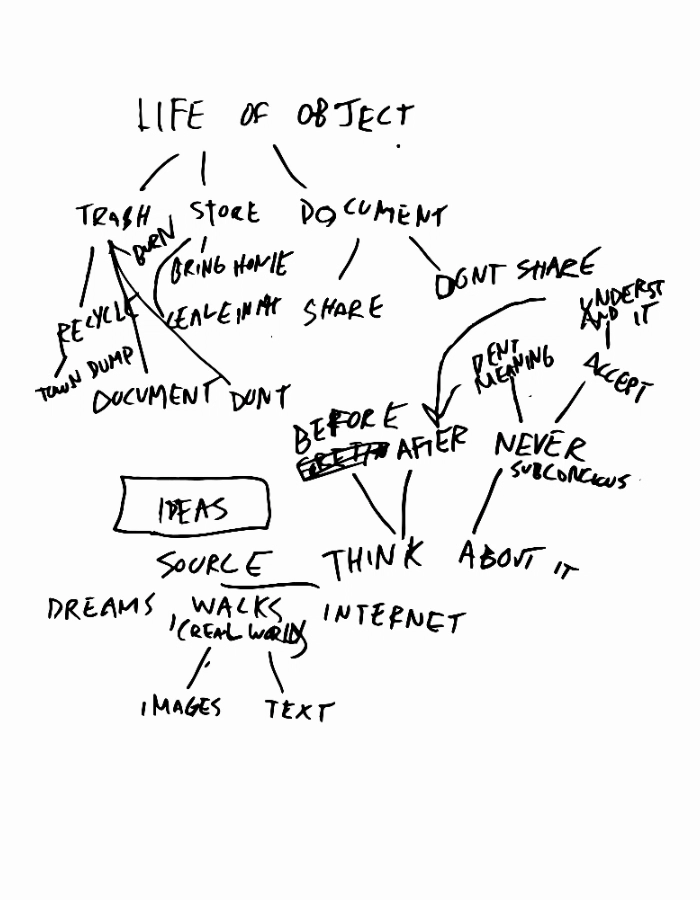 LIFE OF OBJECT
TRASH STORE DOCUMENT
BURN
BRING HOME
DONT SHARE
RECYCLE
SHARE
UNDERST
AND IT
TOWN DUMP
DOCUMENT DONT
MEANING
ACCEPT
BEFORE
AFTER
NEVER
SUBCONCIOUS
IDEAS
SOURCE
THINK ABOUT IT
DREAMS WALKS INTERNET
(REAL WORLD)
IMAGES TEXT